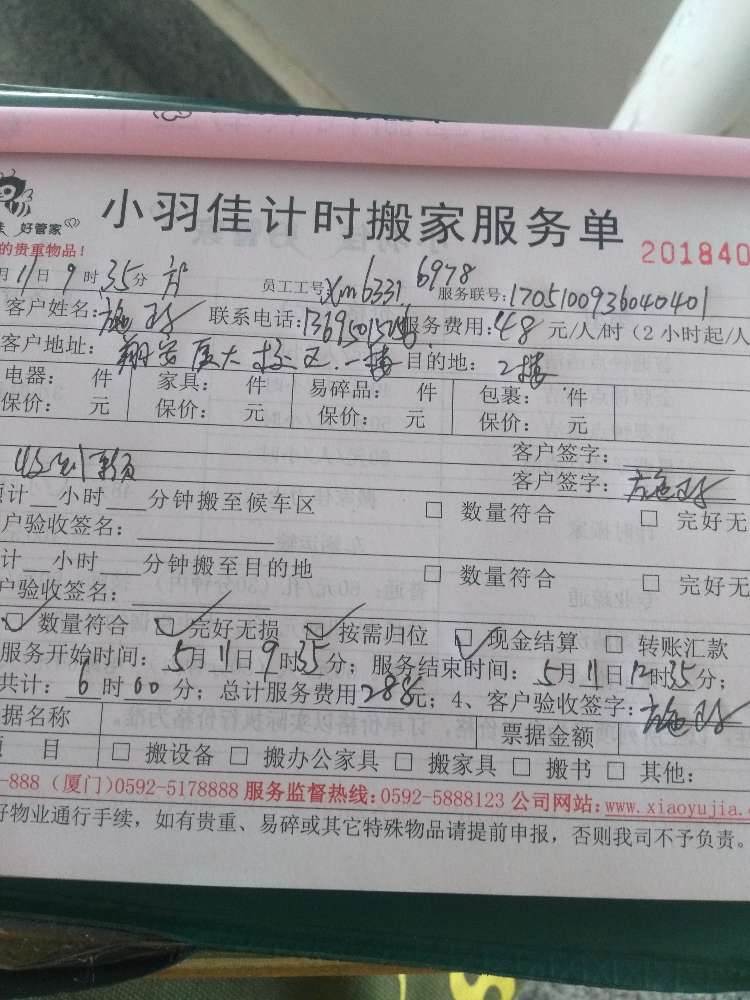 好管家
小羽佳计时搬家服务单
201840
的贵重物品！
月11日9时35分 员工工号：Xm6331 6978 服务联号：1705100936040401
客户姓名：施 联系电话： 服务费用：48元/人/时（2小时起/人
客户地址：翔安厦大校区.一楼 目的地：2楼
电器： 件 家具： 件 易碎品： 件 包裹： 件
保价： 元 保价： 元 保价： 元 保价： 元
客户签字：
客户签字：施
计 小时 分钟搬至候车区 □ 数量符合 □ 完好无
户验收签名：
计 小时 分钟搬至目的地 □ 数量符合 □ 完好无
户验收签名：
☑ 数量符合 ☑ 完好无损 ☑ 按需归位 ☑ 现金结算 □ 转账汇款
服务开始时间：5月11日9时35分；服务结束时间：5月11日12时35分；
共计：6时00分；总计服务费用288元；4、客户验收签字：施
据名称 票据金额
目 □ 搬设备 □ 搬办公家具 □ 搬家具 □ 搬书 □ 其他：
-888（厦门）0592-5178888 服务监督热线：0592-5888123 公司网站：www.xiaoyujia.
好物业通行手续，如有贵重、易碎或其它特殊物品请提前申报，否则我司不予负责。